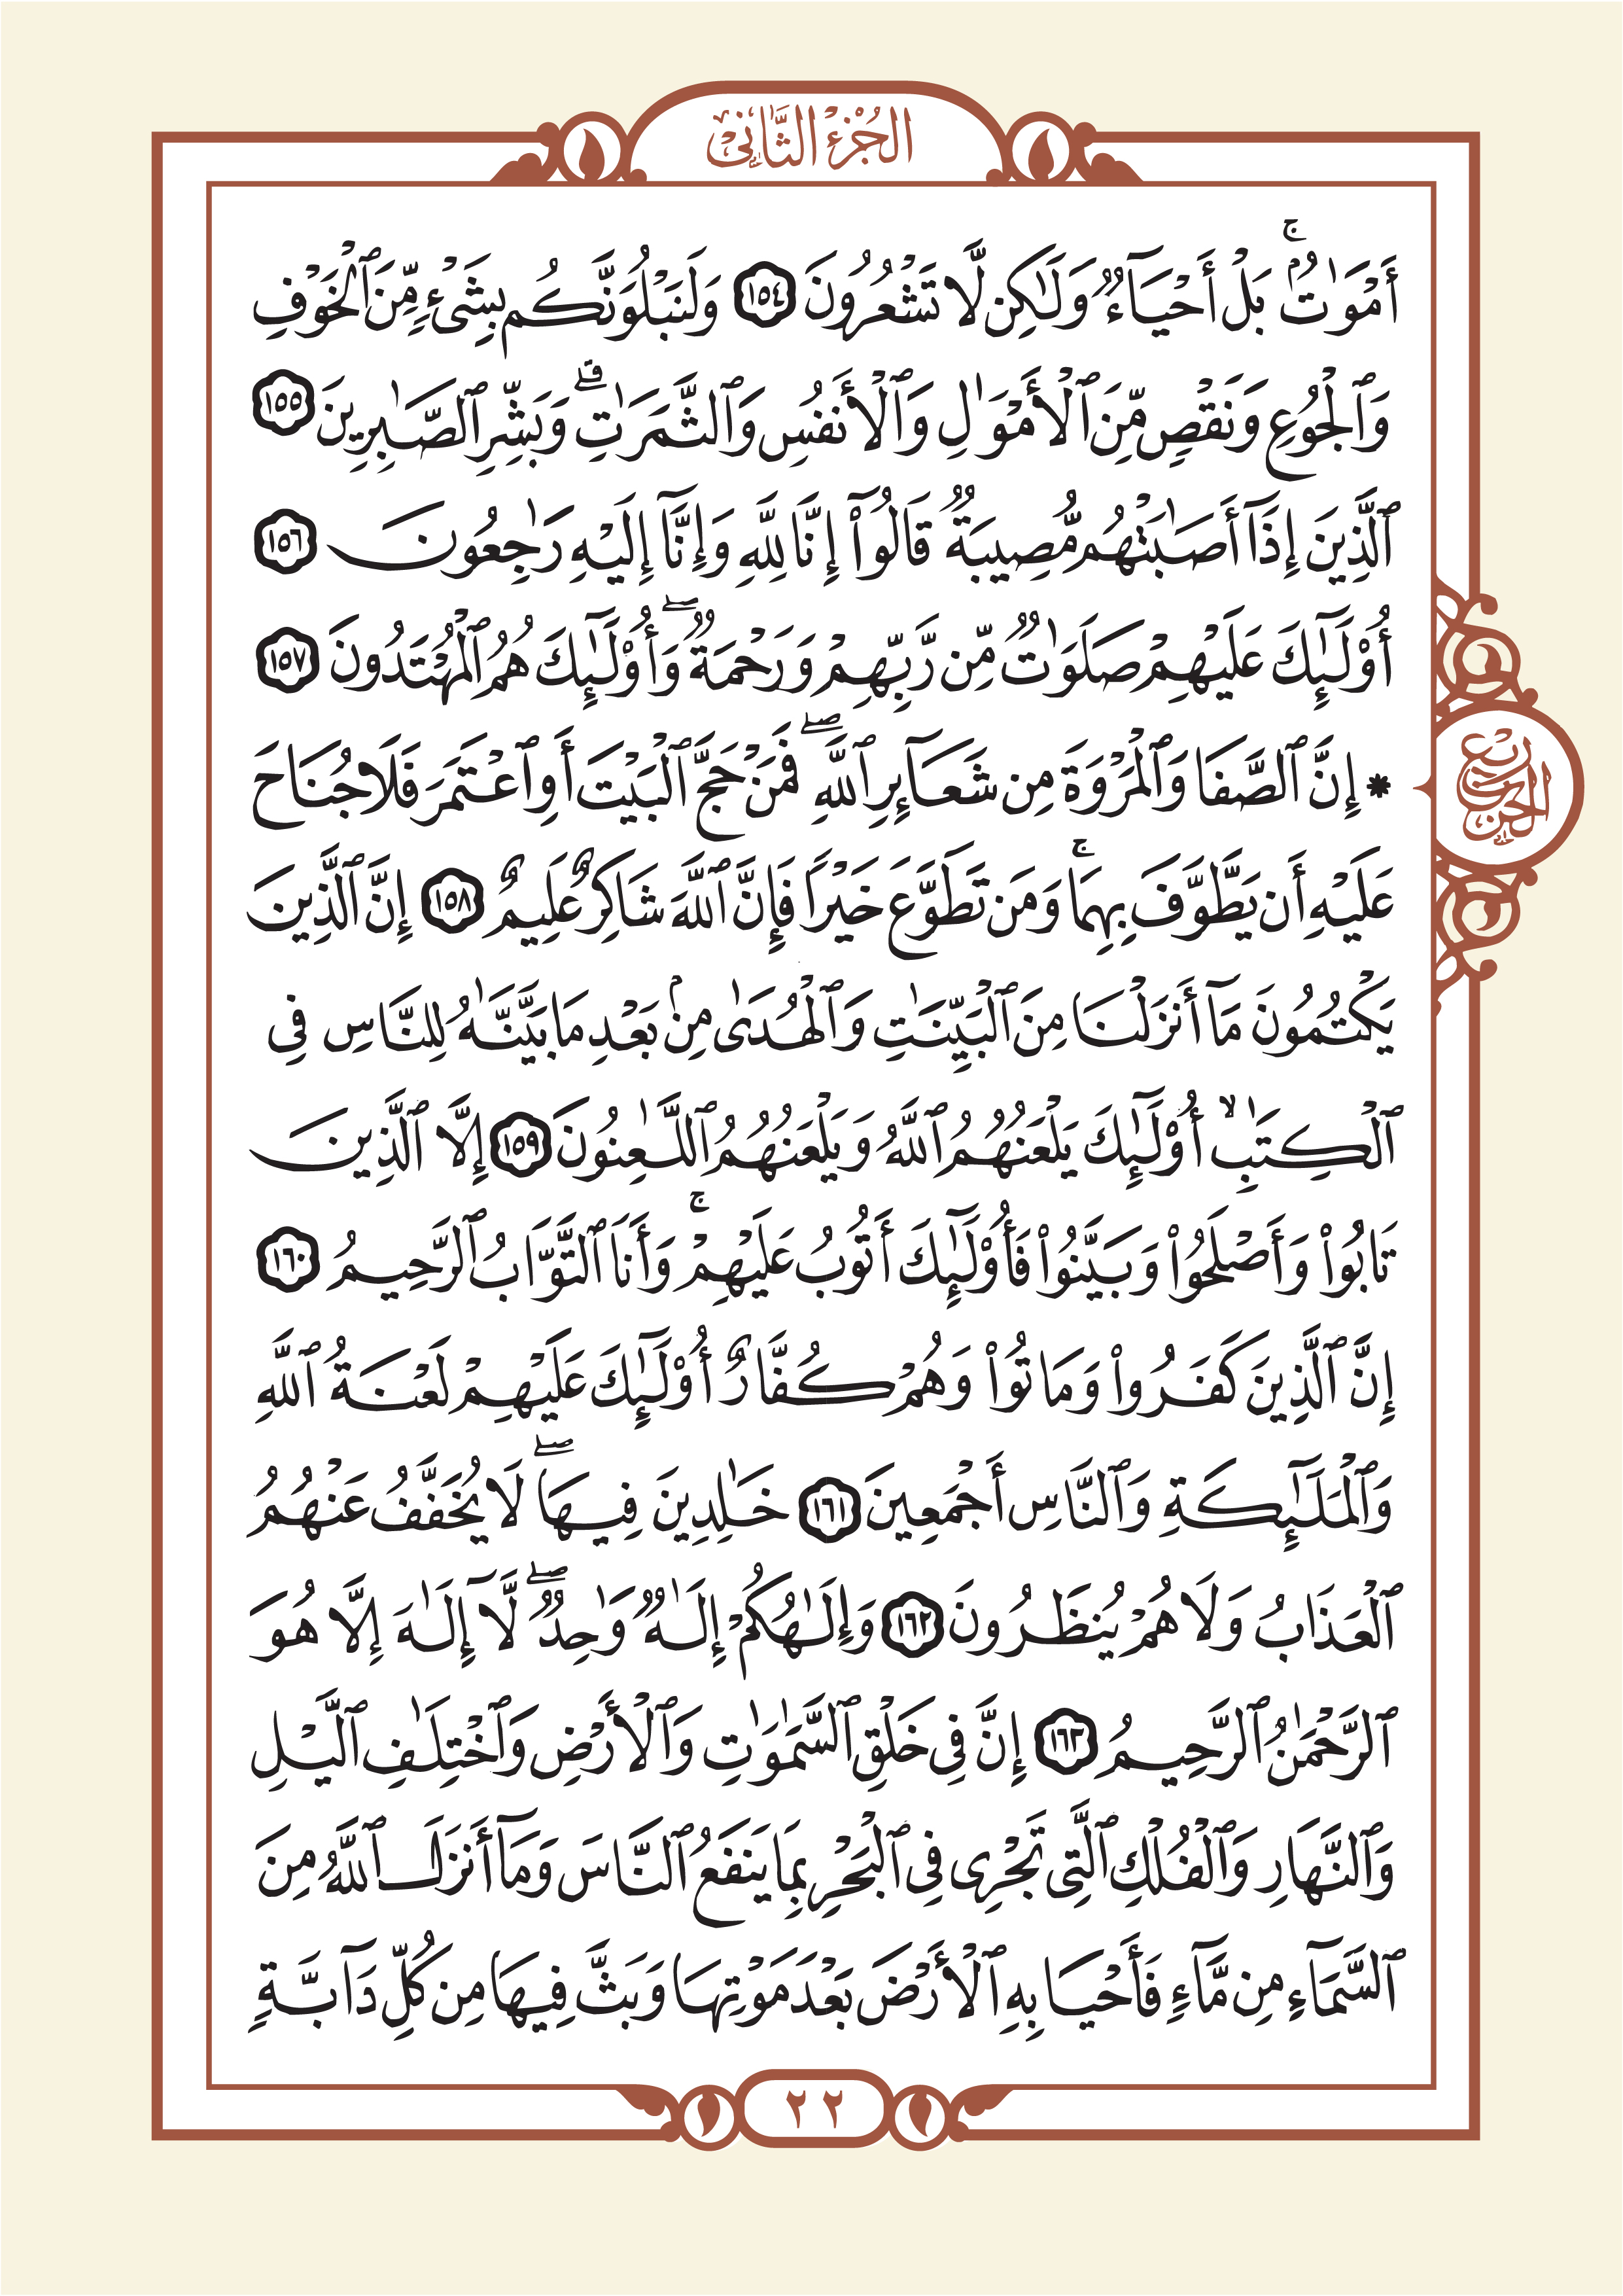 الجُزْءُ الثَّانِي
أَمۡوَٰتُۢۚ بَلۡ أَحۡيَآءٞ وَلَٰكِن لَّا تَشۡعُرُونَ ١٥٤ وَلَنَبۡلُوَنَّكُم بِشَيۡءٖ مِّنَ ٱلۡخَوۡفِ
وَٱلۡجُوعِ وَنَقۡصٖ مِّنَ ٱلۡأَمۡوَٰلِ وَٱلۡأَنفُسِ وَٱلثَّمَرَٰتِۗ وَبَشِّرِ ٱلصَّٰبِرِينَ ١٥٥
ٱلَّذِينَ إِذَآ أَصَٰبَتۡهُم مُّصِيبَةٞ قَالُوٓاْ إِنَّا لِلَّهِ وَإِنَّآ إِلَيۡهِ رَٰجِعُونَ ١٥٦
أُوْلَٰٓئِكَ عَلَيۡهِمۡ صَلَوَٰتٞ مِّن رَّبِّهِمۡ وَرَحۡمَةٞۖ وَأُوْلَٰٓئِكَ هُمُ ٱلۡمُهۡتَدُونَ ١٥٧
۞ إِنَّ ٱلصَّفَا وَٱلۡمَرۡوَةَ مِن شَعَآئِرِ ٱللَّهِۖ فَمَنۡ حَجَّ ٱلۡبَيۡتَ أَوِ ٱعۡتَمَرَ فَلَا جُنَاحَ
عَلَيۡهِ أَن يَطَّوَّفَ بِهِمَاۚ وَمَن تَطَوَّعَ خَيۡرٗا فَإِنَّ ٱللَّهَ شَاكِرٌ عَلِيمٌ ١٥٨ إِنَّ ٱلَّذِينَ
يَكۡتُمُونَ مَآ أَنزَلۡنَا مِنَ ٱلۡبَيِّنَٰتِ وَٱلۡهُدَىٰ مِنۢ بَعۡدِ مَا بَيَّنَّٰهُ لِلنَّاسِ فِي
ٱلۡكِتَٰبِ أُوْلَٰٓئِكَ يَلۡعَنُهُمُ ٱللَّهُ وَيَلۡعَنُهُمُ ٱللَّٰعِنُونَ ١٥٩ إِلَّا ٱلَّذِينَ
تَابُواْ وَأَصۡلَحُواْ وَبَيَّنُواْ فَأُوْلَٰٓئِكَ أَتُوبُ عَلَيۡهِمۡۚ وَأَنَا ٱلتَّوَّابُ ٱلرَّحِيمُ ١٦٠
إِنَّ ٱلَّذِينَ كَفَرُواْ وَمَاتُواْ وَهُمۡ كُفَّارٌ أُوْلَٰٓئِكَ عَلَيۡهِمۡ لَعۡنَةُ ٱللَّهِ
وَٱلۡمَلَٰٓئِكَةِ وَٱلنَّاسِ أَجۡمَعِينَ ١٦١ خَٰلِدِينَ فِيهَاۖ لَا يُخَفَّفُ عَنۡهُمُ
ٱلۡعَذَابُ وَلَا هُمۡ يُنظَرُونَ ١٦٢ وَإِلَٰهُكُمۡ إِلَٰهٞ وَٰحِدٞۖ لَّآ إِلَٰهَ إِلَّا هُوَ
ٱلرَّحۡمَٰنُ ٱلرَّحِيمُ ١٦٣ إِنَّ فِي خَلۡقِ ٱلسَّمَٰوَٰتِ وَٱلۡأَرۡضِ وَٱخۡتِلَٰفِ ٱلَّيۡلِ
وَٱلنَّهَارِ وَٱلۡفُلۡكِ ٱلَّتِي تَجۡرِي فِي ٱلۡبَحۡرِ بِمَا يَنفَعُ ٱلنَّاسَ وَمَآ أَنزَلَ ٱللَّهُ مِنَ
ٱلسَّمَآءِ مِن مَّآءٖ فَأَحۡيَا بِهِ ٱلۡأَرۡضَ بَعۡدَ مَوۡتِهَا وَبَثَّ فِيهَا مِن كُلِّ دَآبَّةٖ
ربع الحزب
٢٢